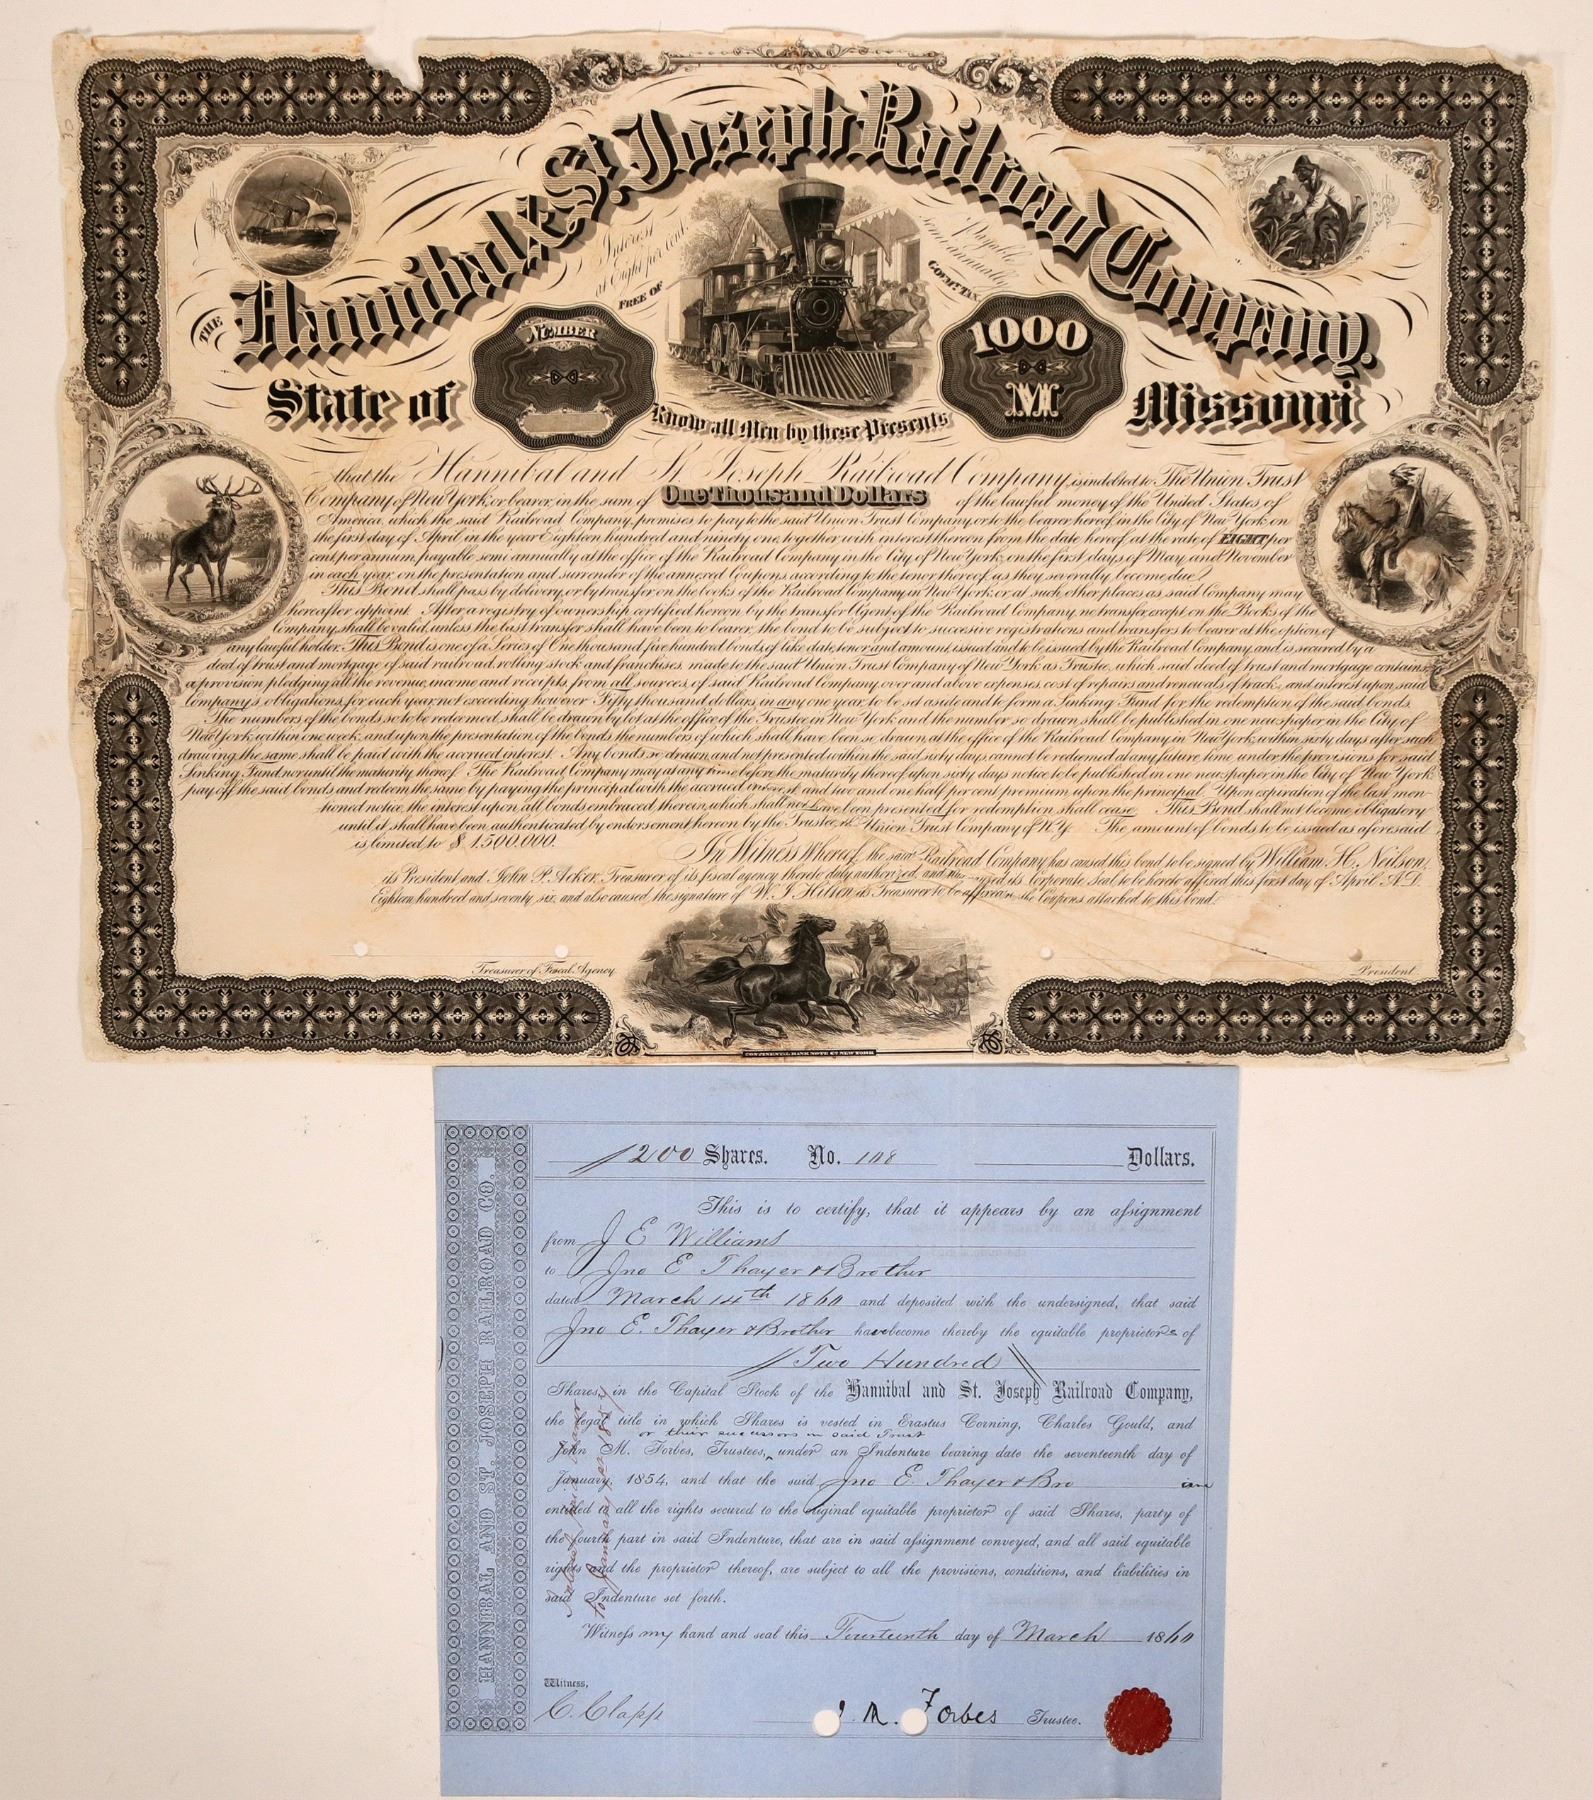 THE Hannibal & St. Joseph Railroad Company.
Interest at Eight per cent.
Payable semi-annually
FREE OF GOVMT. TAX
NUMBER
1000
M
State of Missouri
Know all Men by these Presents
that the Hannibal and St. Joseph Railroad Company is indebted to The Union Trust
Company of New York, or bearer, in the sum of One Thousand Dollars of the lawful money of the United States of
America, which the said Railroad Company promises to pay to the said Union Trust Company, or to the bearer hereof, in the City of New York, on
the first day of April in the year Eighteen hundred and ninety one, together with interest thereon from the date hereof, at the rate of EIGHT per
cent per annum, payable semi annually at the office of the Railroad Company in the City of New York, on the first days of May and November
in each year, on the presentation and surrender of the annexed Coupons according to the tenor thereof, as they severally become due.
This Bond shall pass by delivery, or by transfer on the books of the Railroad Company in New York, or at such other places as said Company may
hereafter appoint. After a registry of ownership certified hereon by the transfer Agent of the Railroad Company, no transfer except on the Books of the
Company, shall be valid, unless the last transfer shall have been to bearer, the bond to be subject to succesive registrations and transfers to bearer at the option of
any lawful holder. This Bond is one of a Series of One thousand five hundred bonds, of like date, tenor and amount, issued and to be issued by the Railroad Company, and is secured by a
deed of trust and mortgage of said railroad, rolling stock and franchises, made to the said Union Trust Company of New York as Trustee, which said deed of trust and mortgage contains
a provision pledging all the revenue, income and receipts, from all sources, of said Railroad Company over and above expenses, cost of repairs and renewals of track, and interest upon said
Company's obligations, for each year, not exceeding however Fifty thousand dollars, in any one year, to be set aside and to form a Sinking Fund for the redemption of the said bonds.
The numbers of the bonds so to be redeemed shall be drawn by lot at the office of the Trustee in New York and the number so drawn, shall be published in one newspaper in the City of
New York, within one week, and upon the presentation of the bonds the numbers of which shall have been so drawn, at the office of the Railroad Company in New York, within sixty days after such
drawing the same shall be paid with the accrued interest. Any bonds so drawn and not presented within the said sixty days cannot be redeemed at any future time under the provisions for said
Sinking Fund nor until the maturity thereof. The Railroad Company may at any time before the maturity thereof upon sixty days notice to be published in one newspaper in the City of New York
pay off the said bonds and redeem the same by paying the principal with the accrued interest and two and one half per cent premium upon the principal. Upon expiration of the last men-
tioned notice, the interest upon all bonds embraced therein, which shall not have been presented for redemption shall cease. This Bond shall not become obligatory
until it shall have been authenticated by endorsement hereon by the Trustee, Union Trust Company of N.Y. The amount of bonds to be issued as aforesaid
is limited to $1,500,000.
In Witness Whereof, the said Railroad Company has caused this bond to be signed by William H. Neilson,
its President and John P. Acker, Treasurer of its fiscal agency thereto duly authorized, and has caused its Corporate Seal, to be hereto affixed this first day of April A.D.
Eighteen hundred and seventy six, and also caused the signature of W. J. Hilsen as Treasurer to be affixed on the Coupons attached to this bond.
Treasurer of Fiscal Agency.
President
CONTINENTAL BANK NOTE CO. NEW YORK
HANNIBAL AND ST. JOSEPH RAILROAD CO.
200 Shares. No. 108 Dollars.
This is to certify, that it appears by an assignment
from J E Williams
to Jno E Thayer & Brother
dated March 14th 1860 and deposited with the undersigned, that said
Jno E. Thayer & Brother have become thereby the equitable proprietors of
// Two Hundred \\
Shares, in the Capital Stock of the Hannibal and St. Joseph Railroad Company,
the legal title in which Shares is vested in Erastus Corning, Charles Gould, and
or their successors in said Trust
John M. Forbes, Trustees, under an Indenture bearing date the seventeenth day of
January, 1854, and that the said Jno E. Thayer & Bro are
entitled to all the rights secured to the original equitable proprietor of said Shares, party of
the fourth part in said Indenture, that are in said assignment conveyed, and all said equitable
rights and the proprietor thereof, are subject to all the provisions, conditions, and liabilities in
said Indenture set forth.
Witness my hand and seal this Fourteenth day of March 1860
Witness,
C. Clapp
J. M. Forbes Trustee.